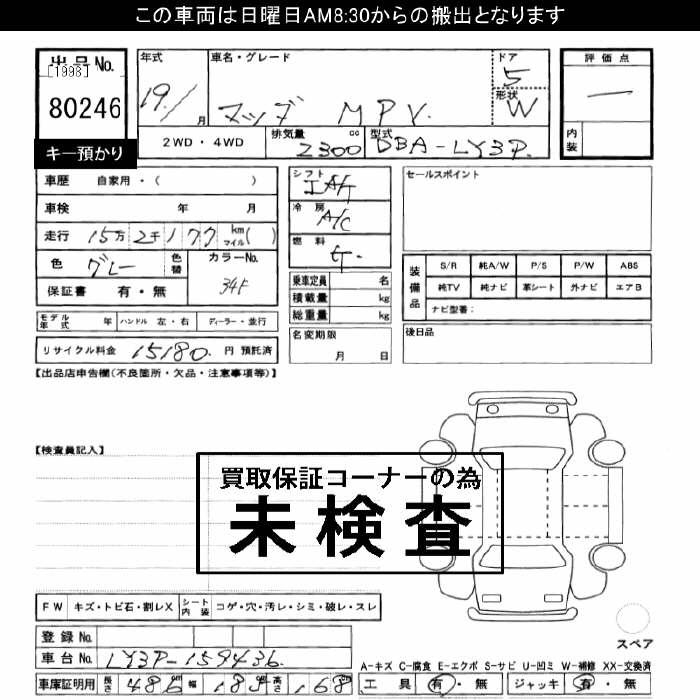 この車両は日曜日AM8:30からの搬出となります
出品No. 年式 車名・グレード ドア 評価点
[1998] 5
80246 19/1月 マツダ MPV 形状 W 一
キー預かり 2WD・4WD 排気量 2300cc 型式 DBA-LY3P 内装
車歴 自家用・( ) シフト IAT セールスポイント
車検 年 月 冷房 A/C
走行 15万2千177 km マイル( ) 燃料 ガ
色 グレー 色替 カラーNo. 34F
保証書 有・無
乗車定員 名
積載量 kg
総重量 kg
装備品 S/R 純A/W P/S P/W ABS
純TV 純ナビ 革シート 外ナビ エアB
ナビ型番:
モデル年式 年 ハンドル 左・右 ディーラー・並行 名変期限 月 日 後日品
リサイクル料金 15180 円 預託済
【出品店申告欄(不良箇所・欠品・注意事項等)】
【検査員記入】
買取保証コーナーの為
未検査
FW キズ・トビ石・割レX シート内装 コゲ・穴・汚レ・シミ・破レ・スレ
登録No. スペア
車台No. LY3P-159436
A-キズ C-腐食 E-エクボ S-サビ U-凹ミ W-補修 XX-交換済
車庫証明用 長さ 486 幅 185 高さ 168 工具 有・無 ジャッキ 有・無